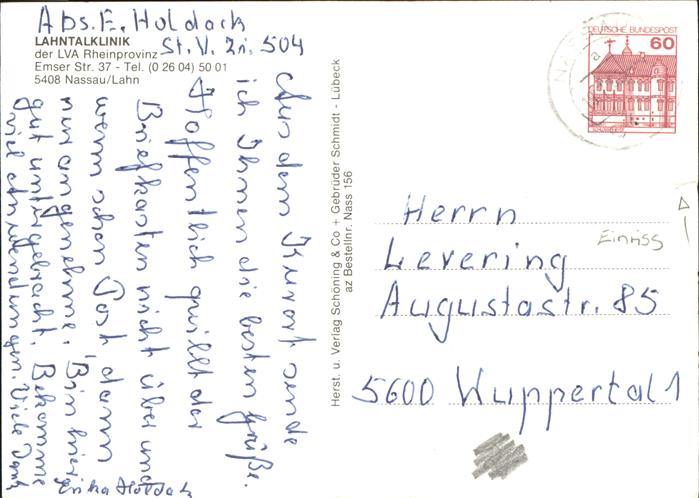 Abs. E. Holdack
St. V. Zi. 504
LAHNTALKLINIK
der LVA Rheinprovinz
Emser Str. 37 - Tel. (0 26 04) 50 01
5408 Nassau/Lahn
Aus dem Kurort sende
ich Ihnen die besten Grüße.
Hoffentlich quillt der
Briefkasten nicht über und
wenn schon Post dann
nur angenehme. Bin hier
gut untergebracht. Bekomme
viel Anwendungen. Viele Dank
Erika Holdack
Herst. u. Verlag Schöning & Co + Gebrüder Schmidt - Lübeck
az Bestellnr. Nass 156
DEUTSCHE BUNDESPOST
60
NASSAU
Herrn
Einriss
Levering
Augustastr. 85
5600 Wuppertal 1